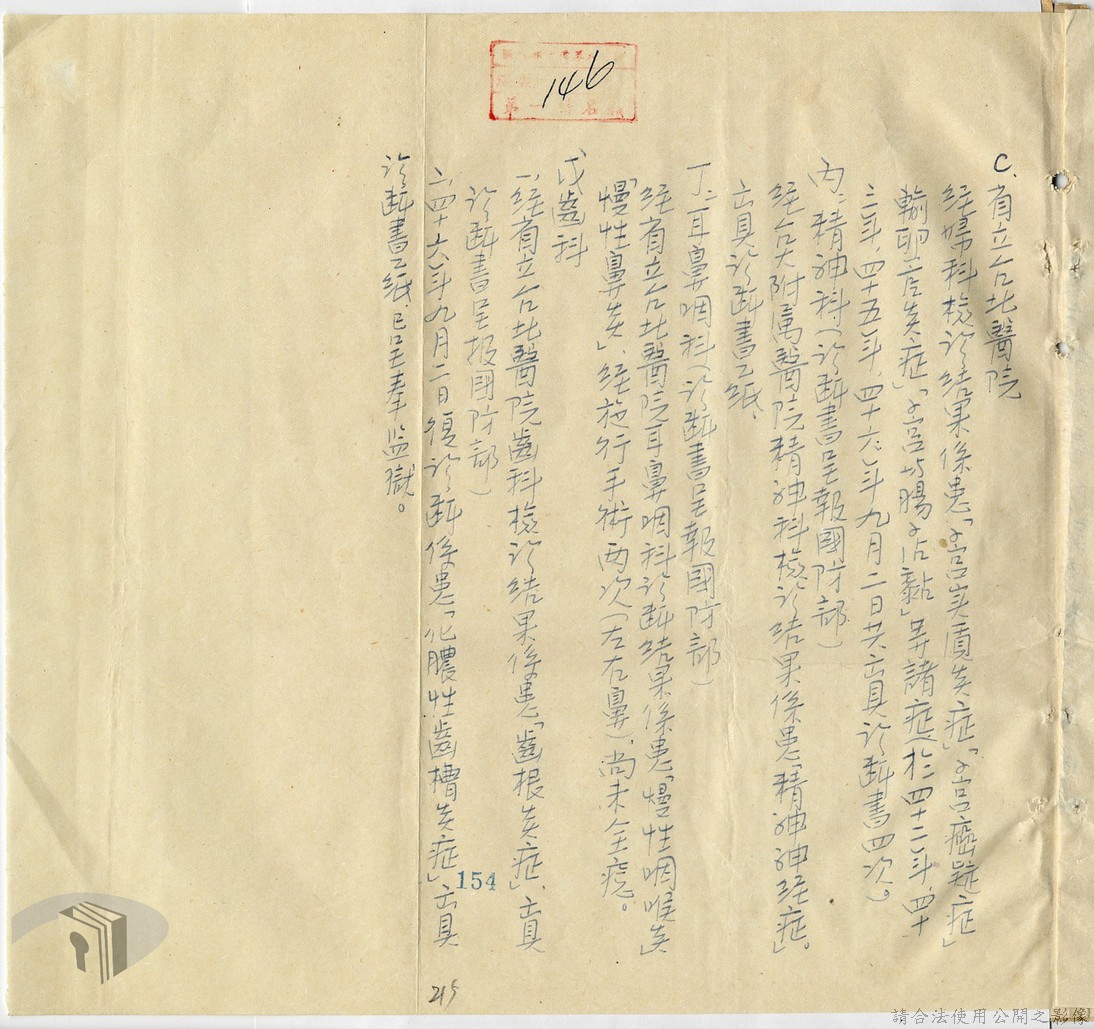 146
C. 省立台北醫院
經婦科檢診結果係患「子宮实質炎症」「子宮癌疑症」
輸卵管炎症」「子宮与腸子佔黏」等諸症(於四十二年、四十
三年、四十五年、四十六年九月二日共出具診断書四次。
丙、精神科(診断書呈報國防部)
經台大附属醫院精神科檢診結果係患「精神神經症」。
出具診断書乙紙、
丁、耳鼻咽科(診断書呈報國防部)
經省立台北醫院耳鼻咽科診断結果係患「慢性咽喉炎」
「慢性鼻炎」、經施行手術两次(左右鼻)、尚未全癒。
戊齒科
一、經省立台北醫院齒科檢診結果係患「齒根炎症」、出具
診断書呈报國防部)
二、四十六年九月二日復診断係患「化膿性齒槽炎症」出具
診断書乙紙、已呈奉监獄。
154
215
請合法使用公開之影像